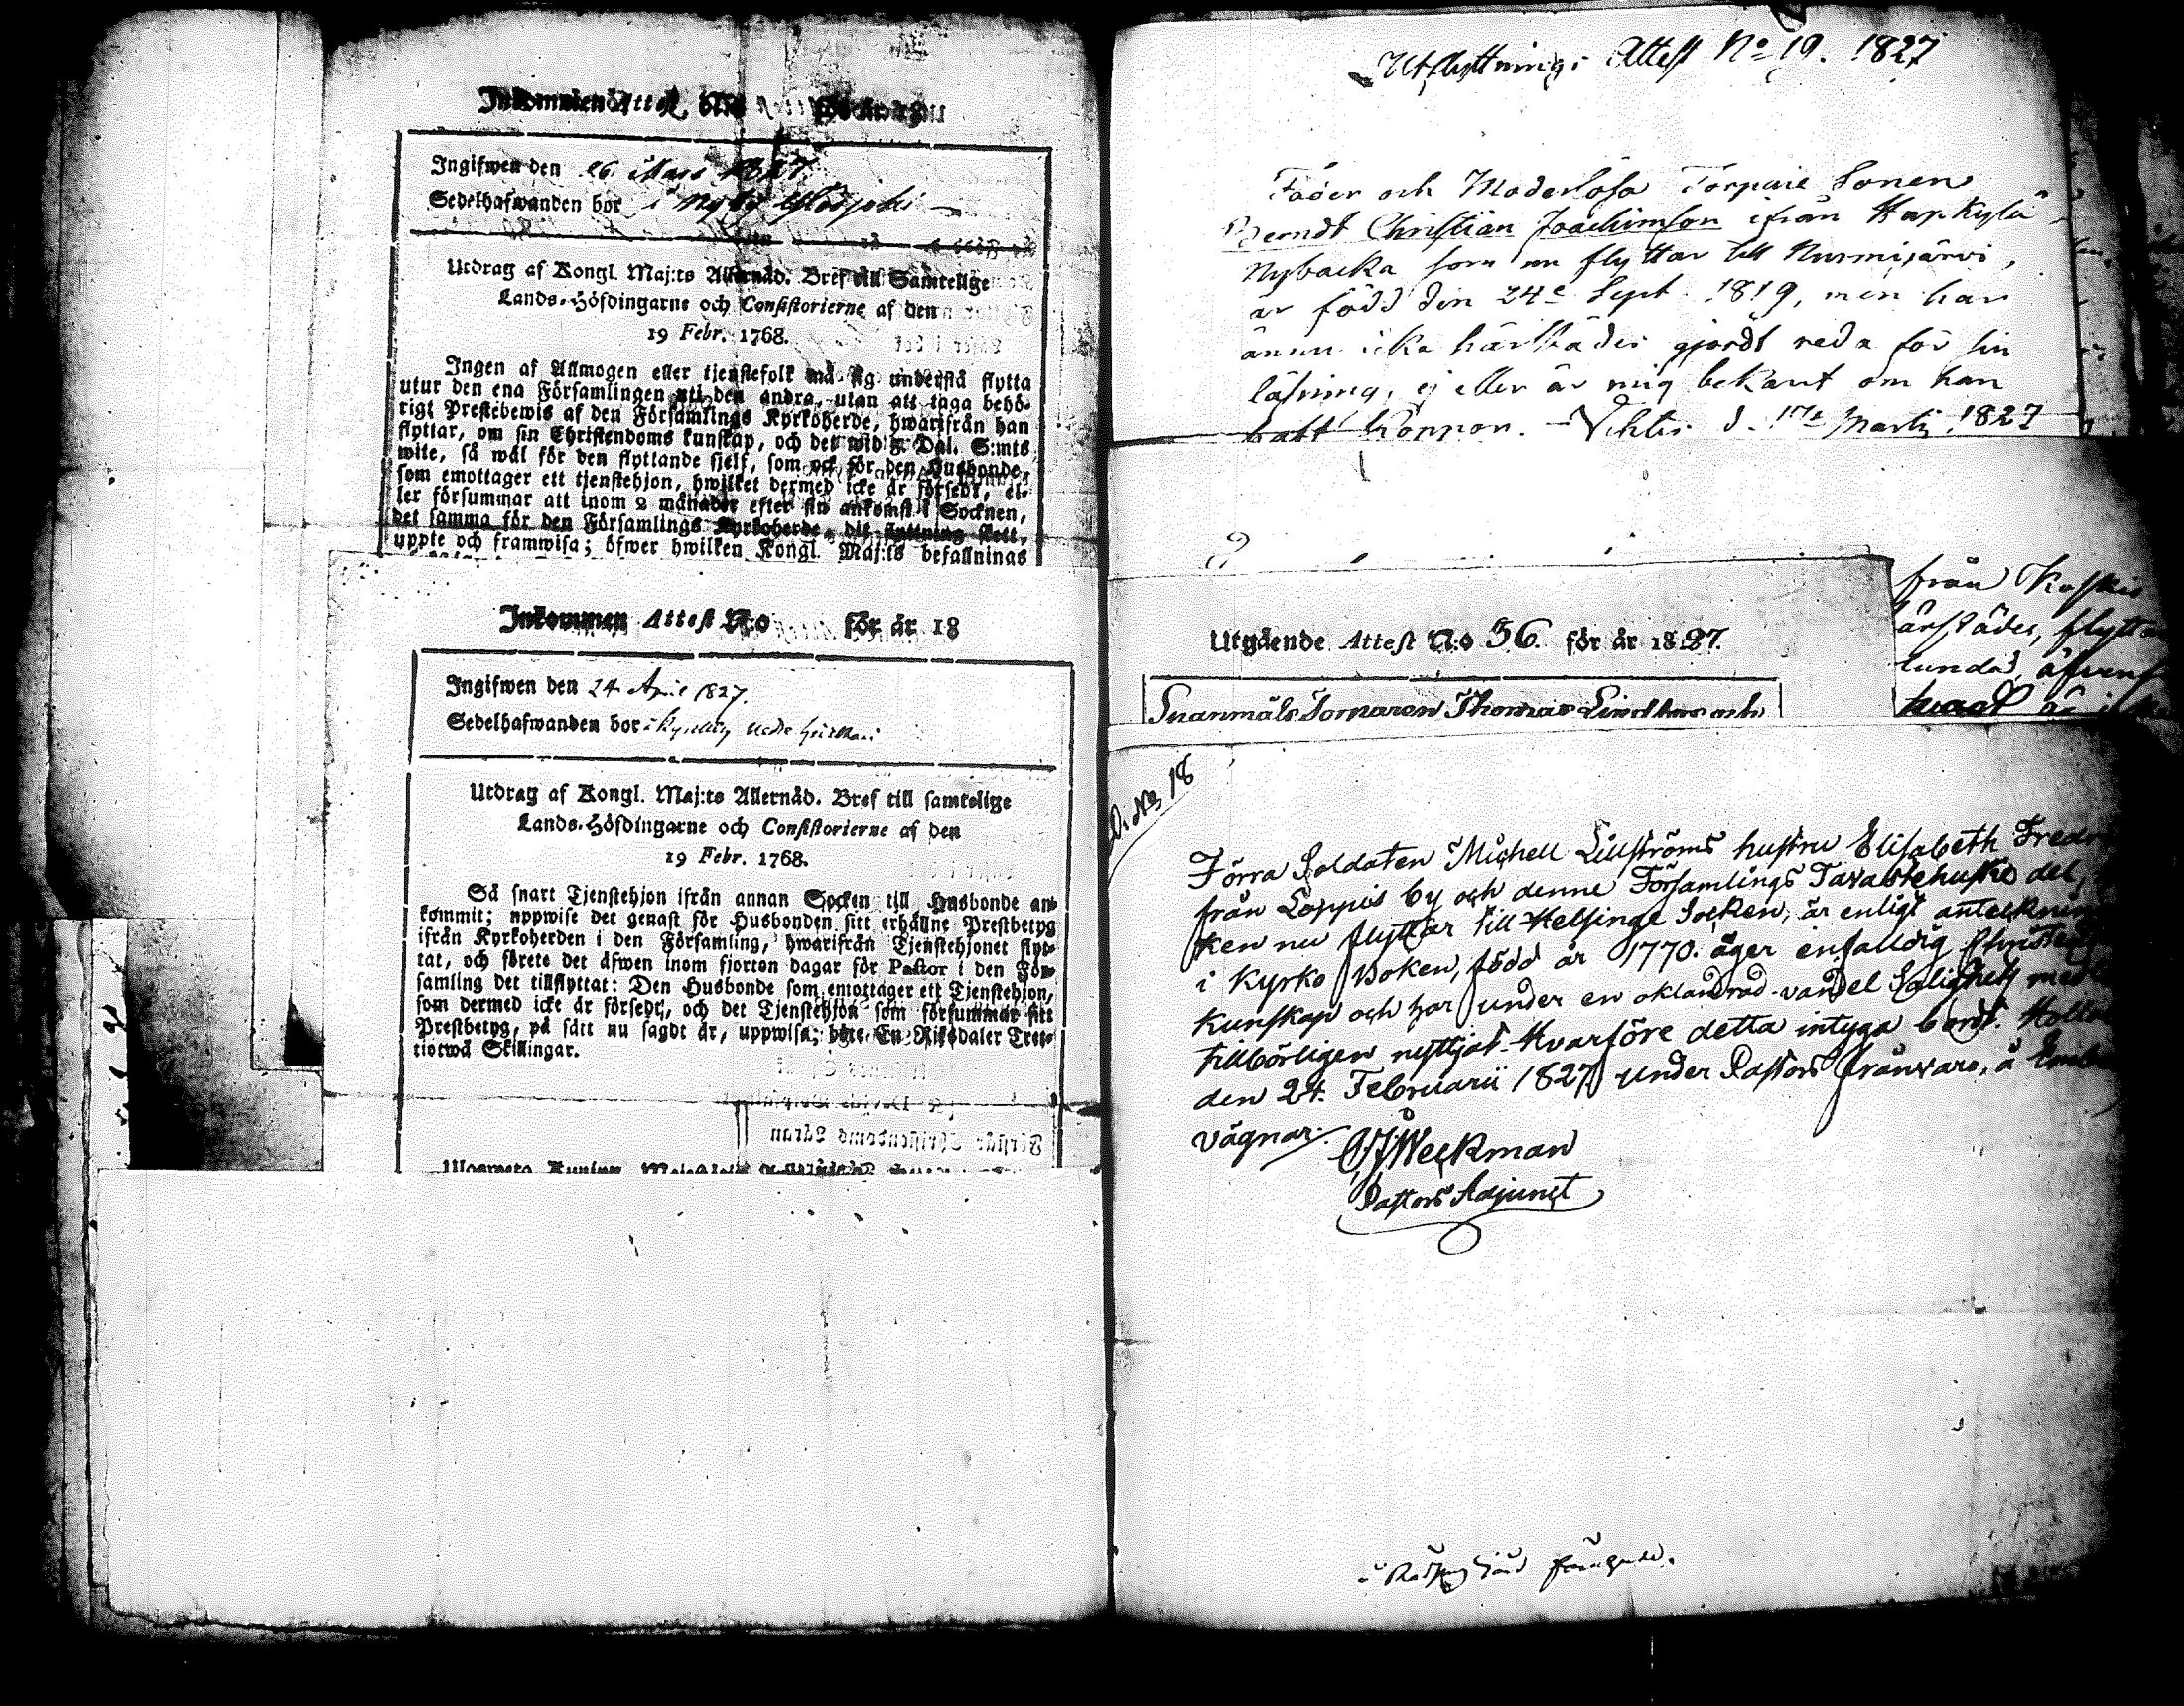 Inkommen Attest N:o
Ingifwen den 26 Mars 1827.
Sedelhafwanden bor i Nyby
Utdrag af Kongl. Maj:ts Allernåd. Bref till Samtelige
Lands-Höfdingarne och Consistorierne af den
19 Febr. 1768.
Ingen af Allmogen eller tjenstefolk må sig understå flytta
utur den ena Församlingen uti den andra, utan att taga behö-
rigt Prestebewis af den Församlings Kyrkoherde, hwarifrån han
flyttar, om sin Christendoms kunskap, och det wid 2. Dal. S:mts
wite, så wäl för den flyttande sjelf, som ock för den Husbonde,
som emottager ett tjenstehjon, hwilket dermed icke är försedt, el-
ler försummar att inom 2 månader efter sin ankomst i Socknen,
det samma för den Församlings Kyrkoherde, dit flyttning skett,
uppte och framwisa; öfwer hwilken Kongl. Maj:ts befallnings
Inkommen Attest N:o för år 18
Ingifwen den 24 April 1827.
Sedelhafwanden bor i
Utdrag af Kongl. Maj:ts Allernåd. Bref till samtelige
Lands-Höfdingarne och Consistorierne af den
19 Febr. 1768.
Så snart Tjenstehjon ifrån annan Socken till Husbonde an-
kommit; uppwise det genast för Husbonden sitt erhållne Prestbetyg
ifrån Kyrkoherden i den Församling, hwarifrån Tjenstehjonet flyt-
tat, och förete det äfwen inom fjorton dagar för Pastor i den För-
samling det tillflyttat: Den Husbonde som emottager ett Tjenstehjon,
som dermed icke är försedt, och det Tjenstehjon som försummar sitt
Prestbetyg, på sätt nu sagdt är, uppwisa; böte En Riksdaler Tret-
tiotwå Skillingar.
Utflyttnings Attest No 19. 1827
Fader och Moderlösa Torpare Sonen
Berndt Christian Joachimson ifrån Haps Kylä
Nybacka som nu flyttar till Nurmijärvi,
är född den 24e Sept. 1819, men har
ännu icke härstädes gjordt reda för sin
läsning, ej eller är mig bekant om han
haft Koppor. Vichtis d. 17de Martii 1827
från Koskis
ärstädes, flytta
Utgående Attest N:o 36. för år 1827.
No 18
Förra Soldaten Michell Lillströms hustru Elisabeth Fredr
från Loppis by och denne Församlings Tavastehuske del,
ken nu flyttar till Helsinge Socken, är enligt anteckning
i Kyrko Boken, född år 1770. äger enfaldig Christend
kunskap och har under en oklandrad vandel Salighets med
tillbörligen nyttjat. Hvarföre detta intyga bordt. Hollo
den 24. Februarii 1827, under Pastors frånvaro, å Embe
vägnar:
Weckman
Pastors Adjunct